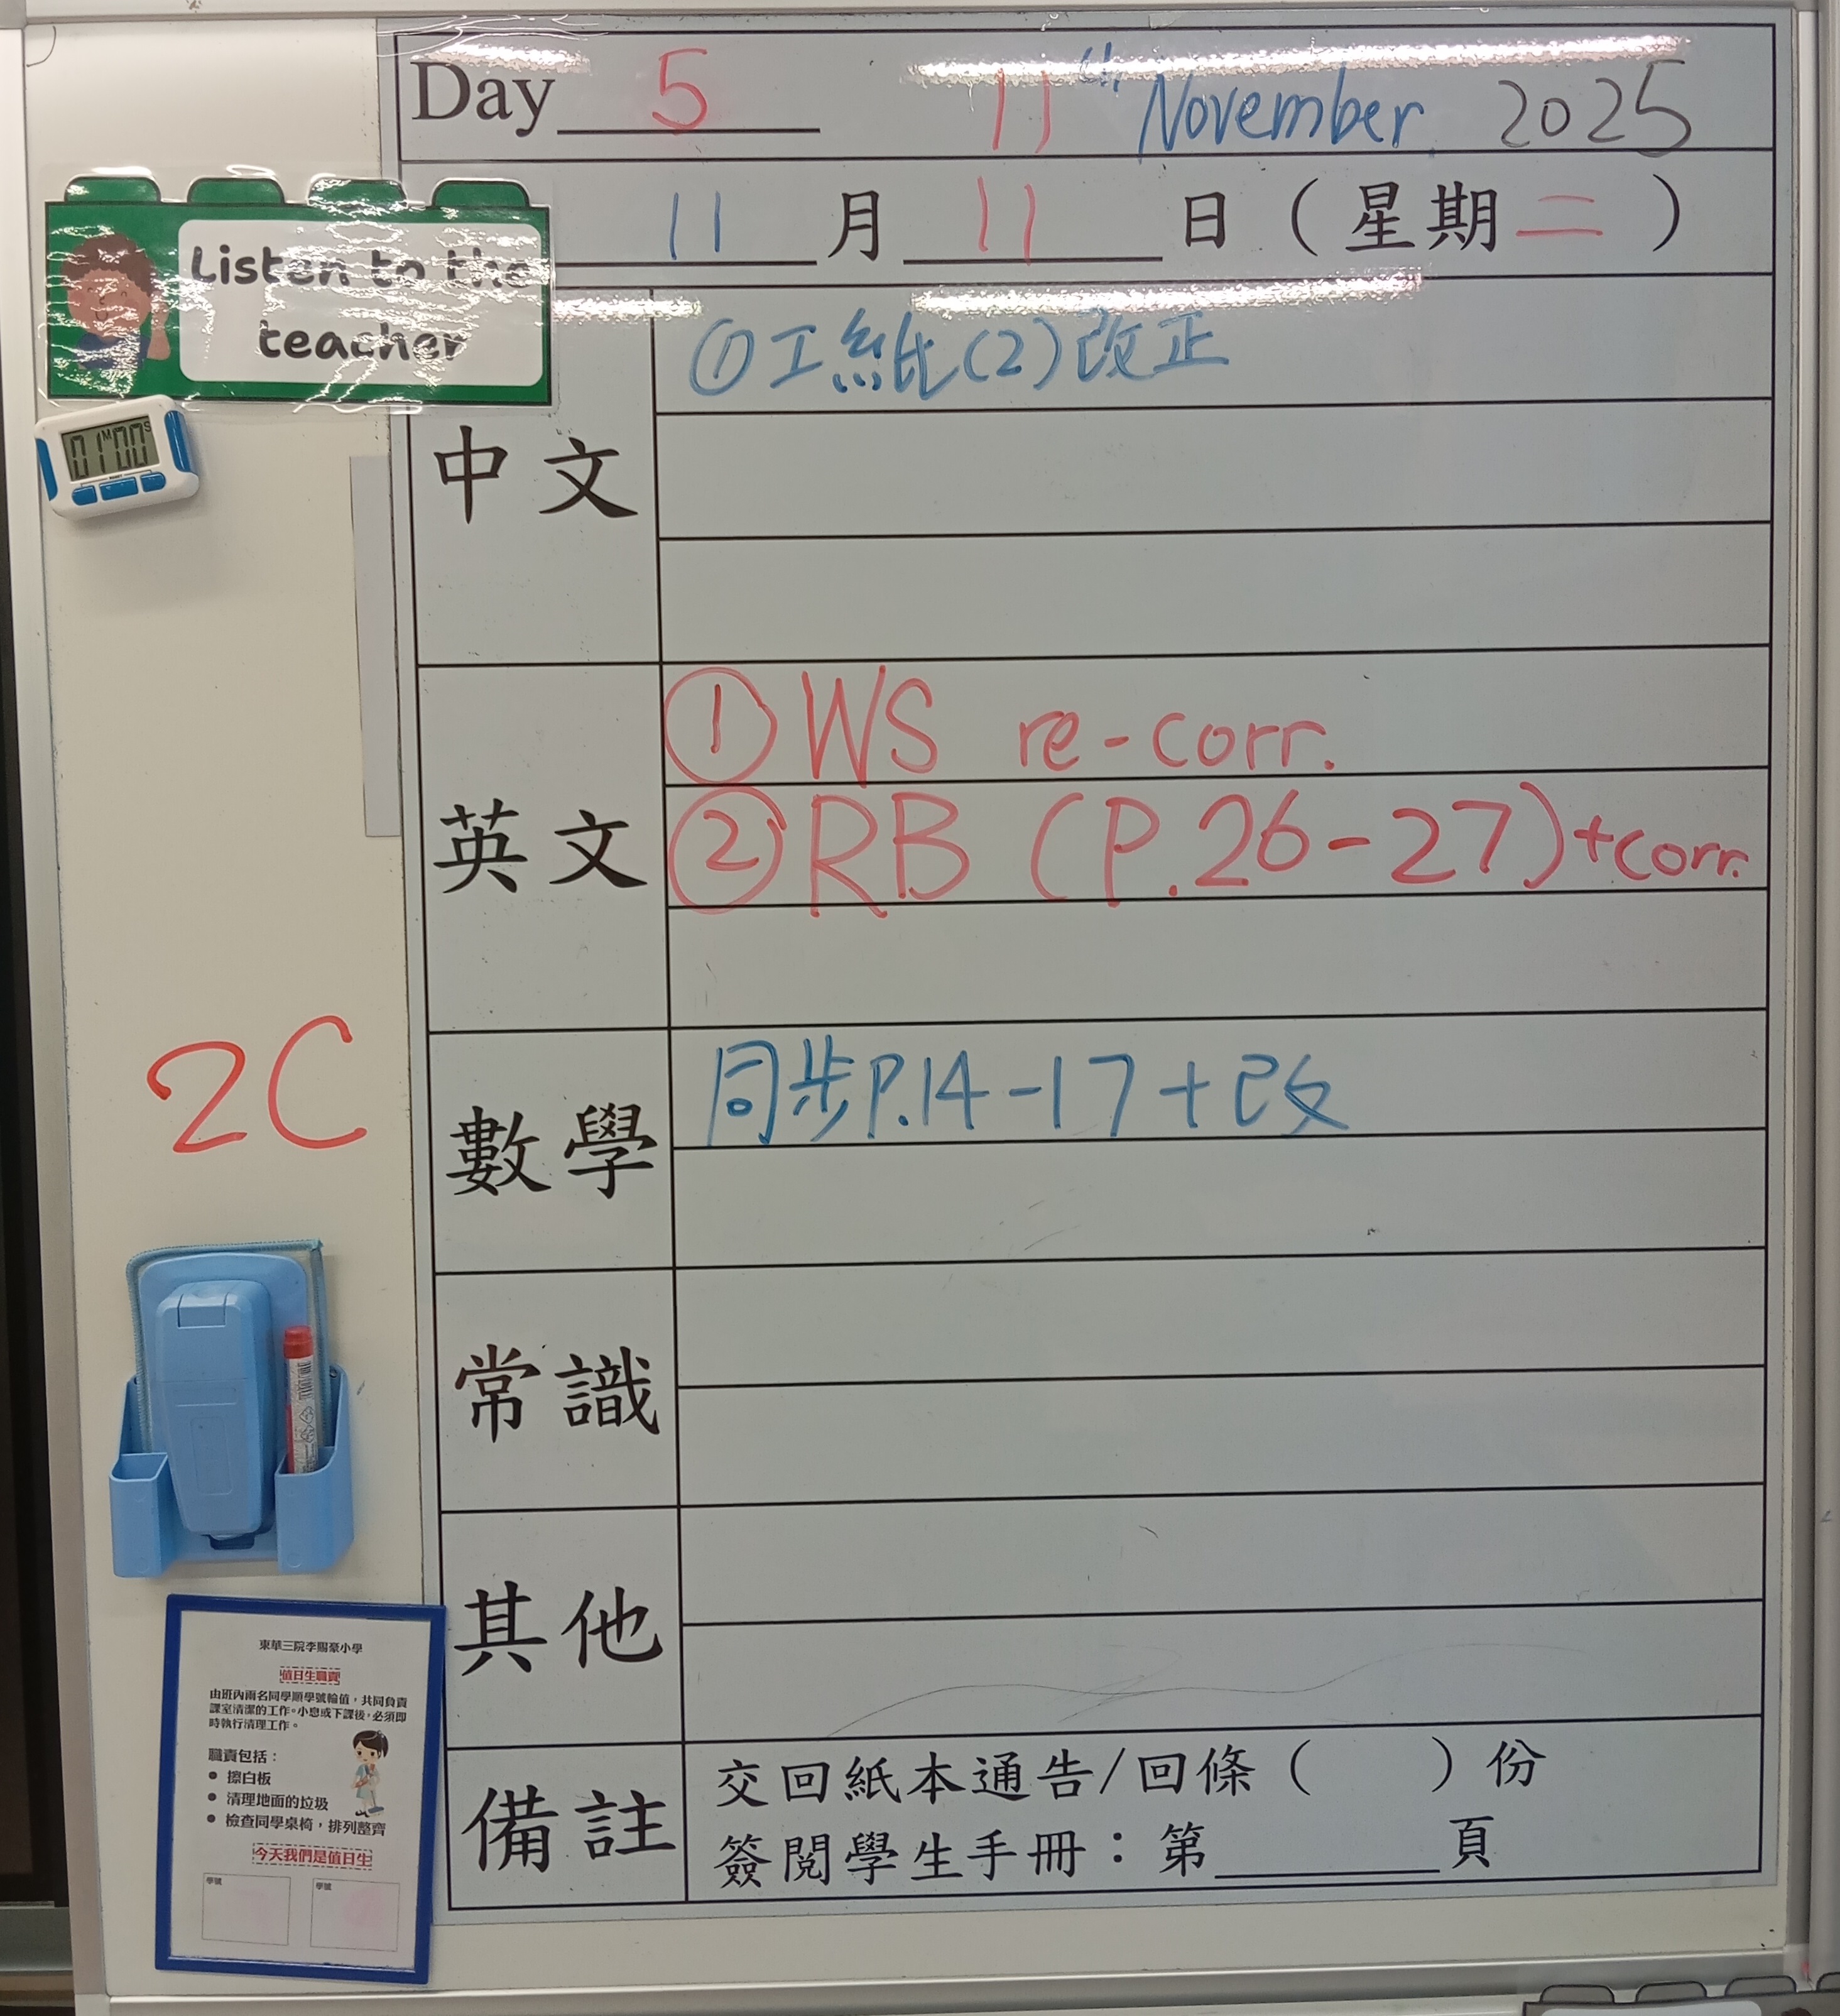 Day 5 11th November 2025
11 月 11 日（星期二）
Listen to the
teacher
01 M 00 S
中文
①工紙(2)改正
英文
① WS re-corr.
② RB (P.26-27)+corr.
2C
數學
同步P.14-17+改
常識
其他
備註
交回紙本通告/回條（ ）份
簽閱學生手冊：第______頁
東華三院李賜豪小學
值日生職責
由班內兩名同學順學號輪值，共同負責
課室清潔的工作。小息或下課後，必須即
時執行清理工作。
職責包括：
• 擦白板
• 清理地面的垃圾
• 檢查同學桌椅，排列整齊
今天我們是值日生
學號 學號